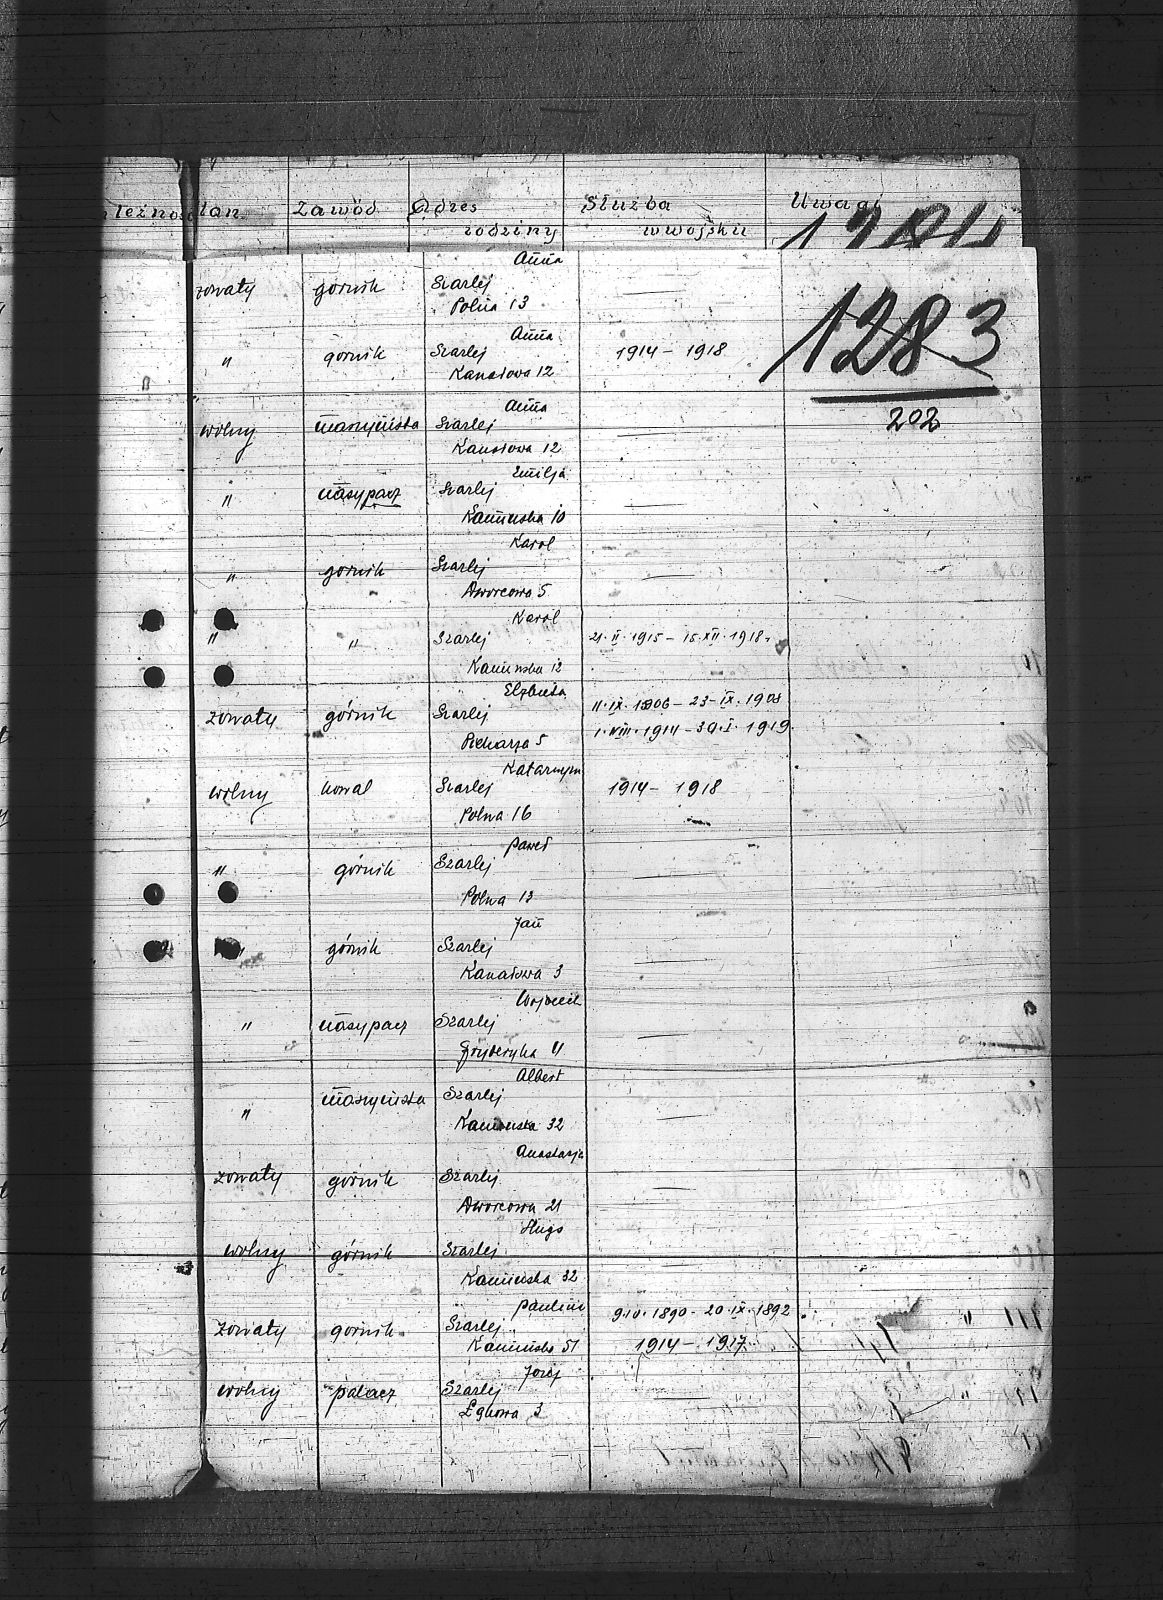 Stan. Zawód Adres Służba Uwagi
rodziny w wojsku
Anna
żonaty górnik Szarlej
Polna 13
1283
Anna
" górnik Szarlej 1914 - 1918
Kanałowa 12
202
Anna
wolny maszynista Szarlej
Kanałowa 12
Emilja
" nasypacz Szarlej
Kamieńska 10
Karol
" górnik Szarlej
Dworcowa 5
Karol
" " Szarlej 21. II. 1915 - 15. XII. 1918.
Kamieńska 12
Elżbieta
11. IX. 1906 - 23. IX. 1908
żonaty górnik Szarlej
1. VIII. 1914 - 30. I. 1919.
Piekarska 5
Katarzyna
wolny kowal Szarlej 1914 - 1918
Polna 16
Paweł
" górnik Szarlej
Polna 13
Jan
" górnik Szarlej
Kanałowa 3
Wojciech
" nasypacz Szarlej
Fryderyka 11
Albert
" maszynista Szarlej
Kamieńska 32
Anastazja
żonaty górnik Szarlej
Dworcowa 21
Hugo
wolny górnik Szarlej
Kamieńska 32
Paulina
9. IV. 1890 - 20. IX. 1892
żonaty górnik Szarlej
Kamieńska 51 1914 - 1917
Józef
wolny palacz Szarlej
Łąkowa 3